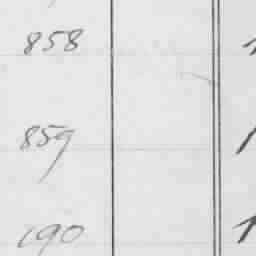 858
859
190